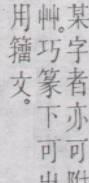 某字者亦可附
艸。巧篆下可出
用籀文。